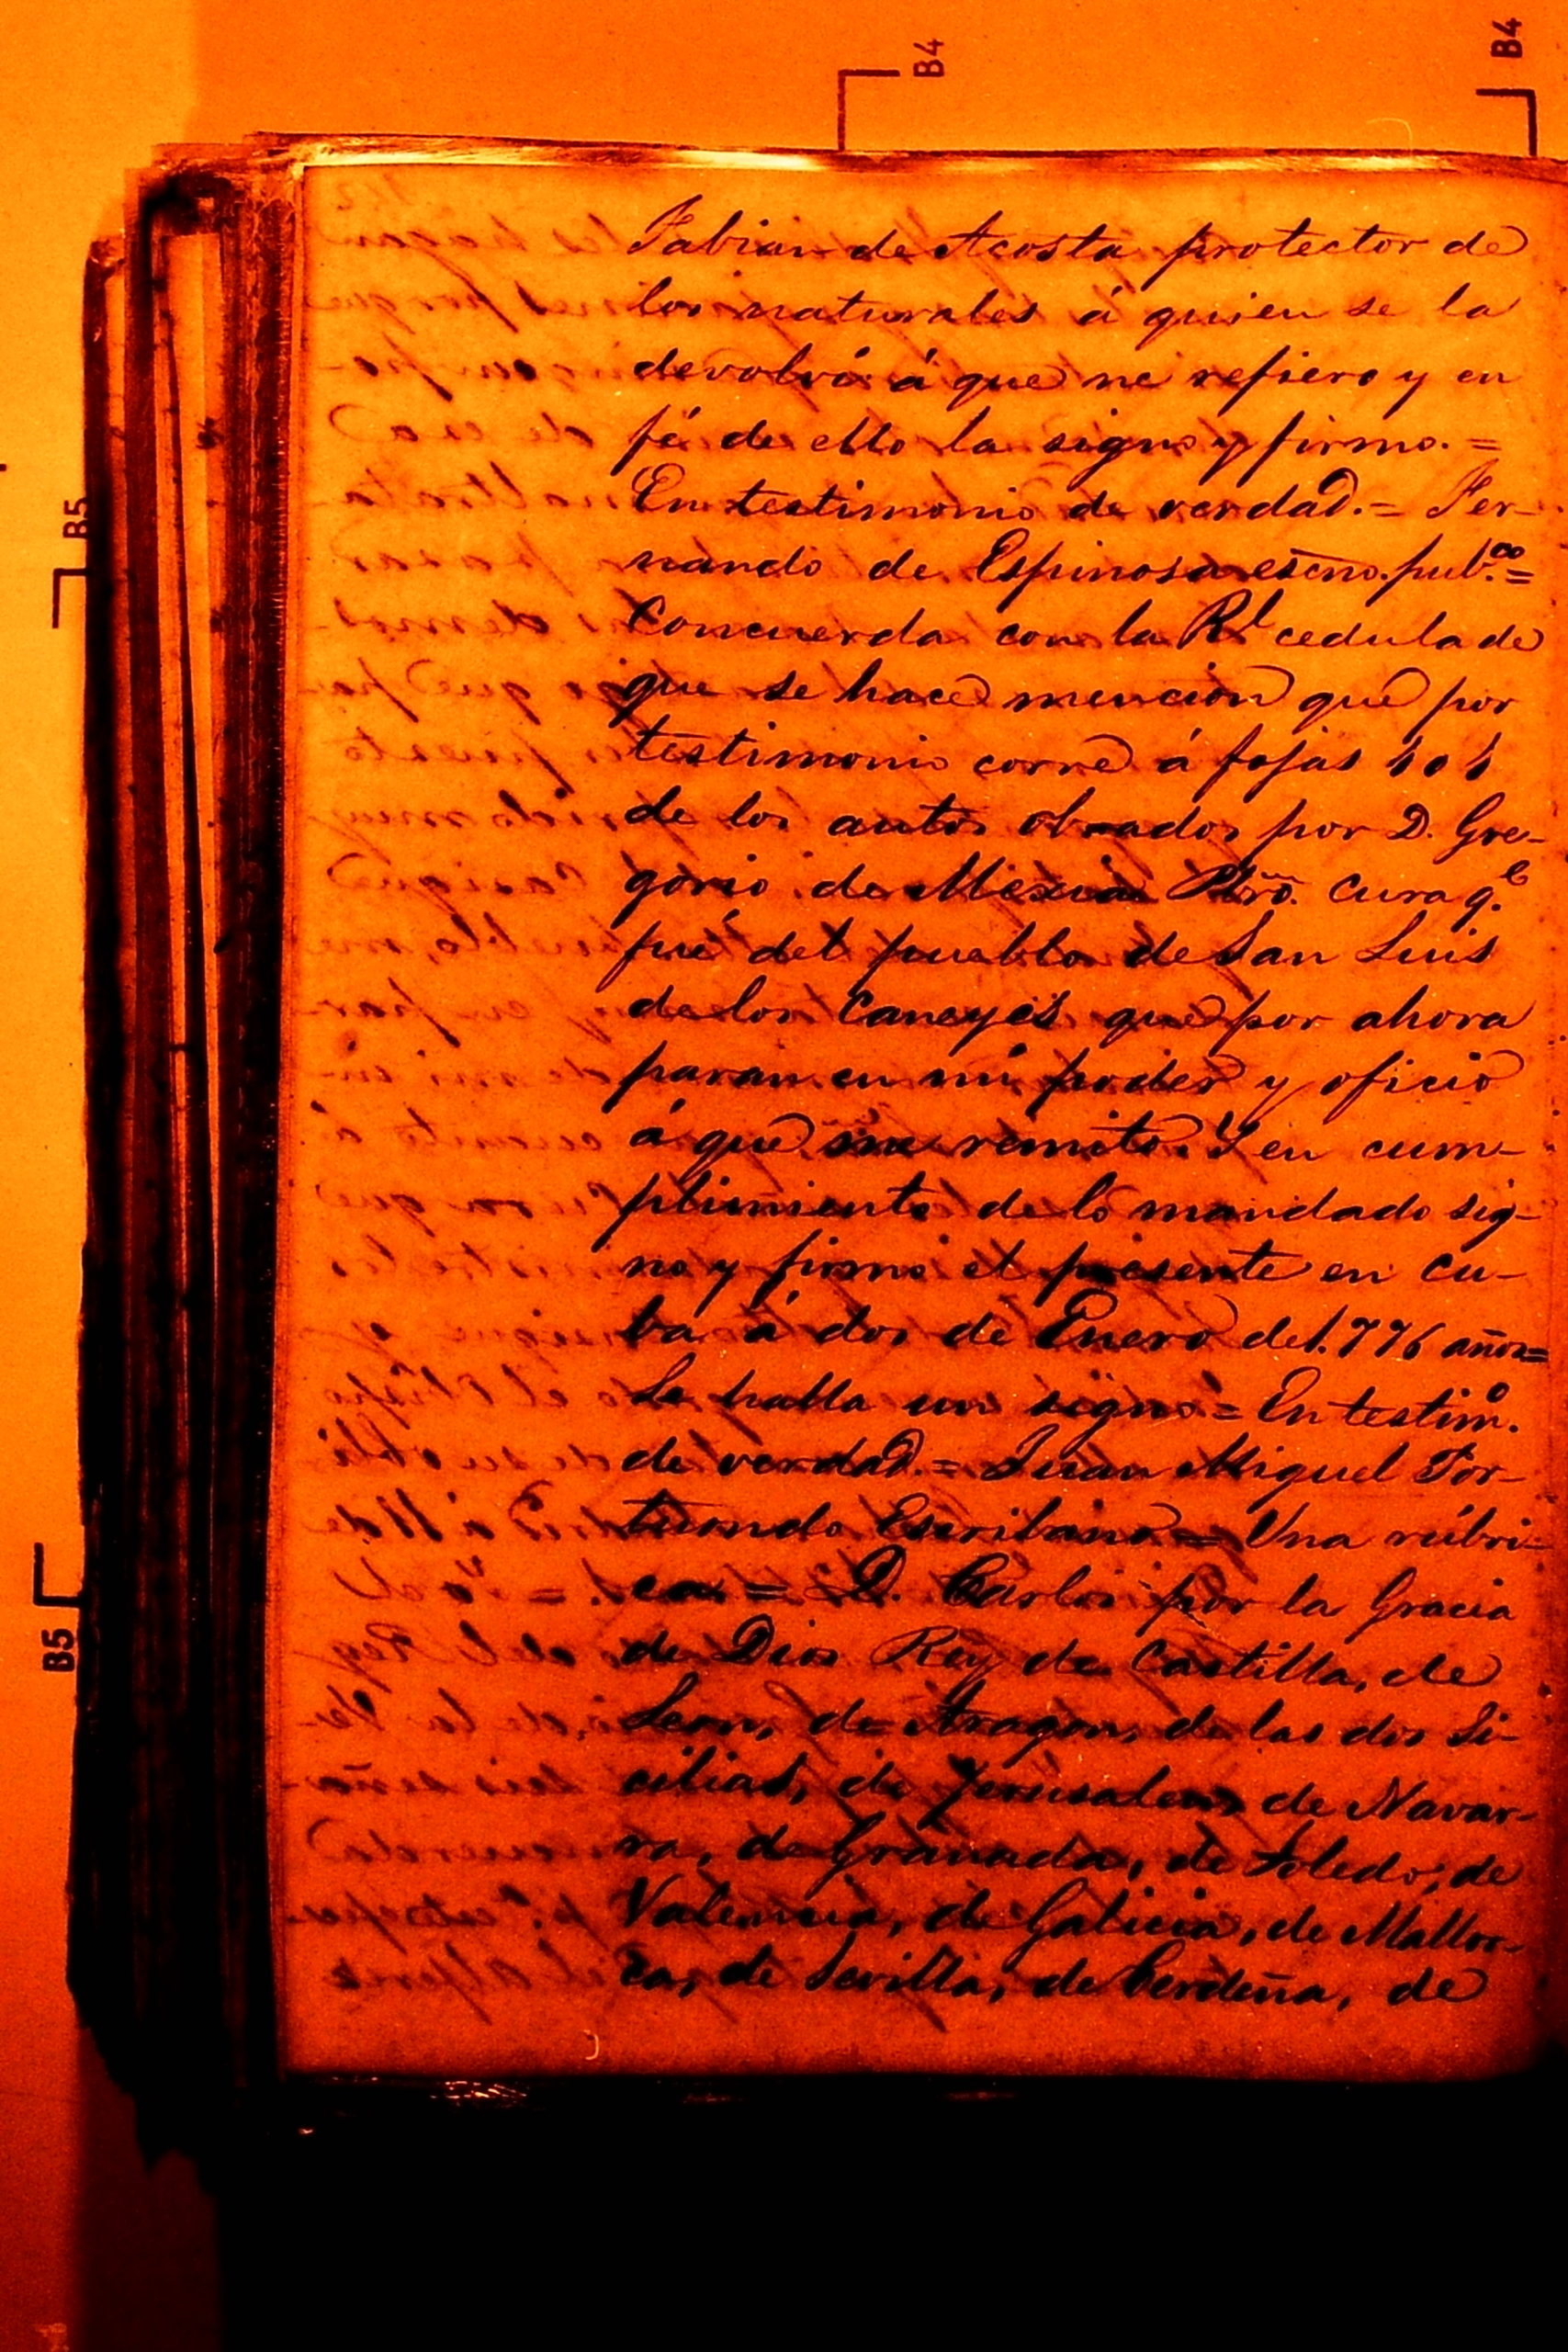 B4
B4
B5
B5
Fabian de Acosta protector de
los naturales á quien se la
devolví á que me refiero y en
fé de ello la signo y firmo. =
En testimonio de verdad. = Fer-
nando de Espinosa esc̄no. pubco. =
Concuerda con la Rl cedula de
que se hace mencion que por
testimonio corre á fojas 101
de los autos obrados por D. Gre-
gorio de Mexia Pbr̄o. Cura q.e
fué del pueblo de San Luis
de los Caneyes que por ahora
paran en mi poder y oficio
á que me remito. Y en cum-
plimiento de lo mandado sig-
no y firmo el presente en Cu-
ba á dos de Enero de 1.776 años =
Se halla un signo = En testim.o
de verdad. = Juan Miguel Por-
tuondo Escribano = Una rúbri-
ca = D. Carlos por la Gracia
de Dios Rey de Castilla, de
Leon, de Aragon, de las dos Si-
cilias, de Jerusalen, de Navar-
ra, de Granada, de Toledo, de
Valencia, de Galicia, de Mallor-
ca, de Sevilla, de Cerdeña, de